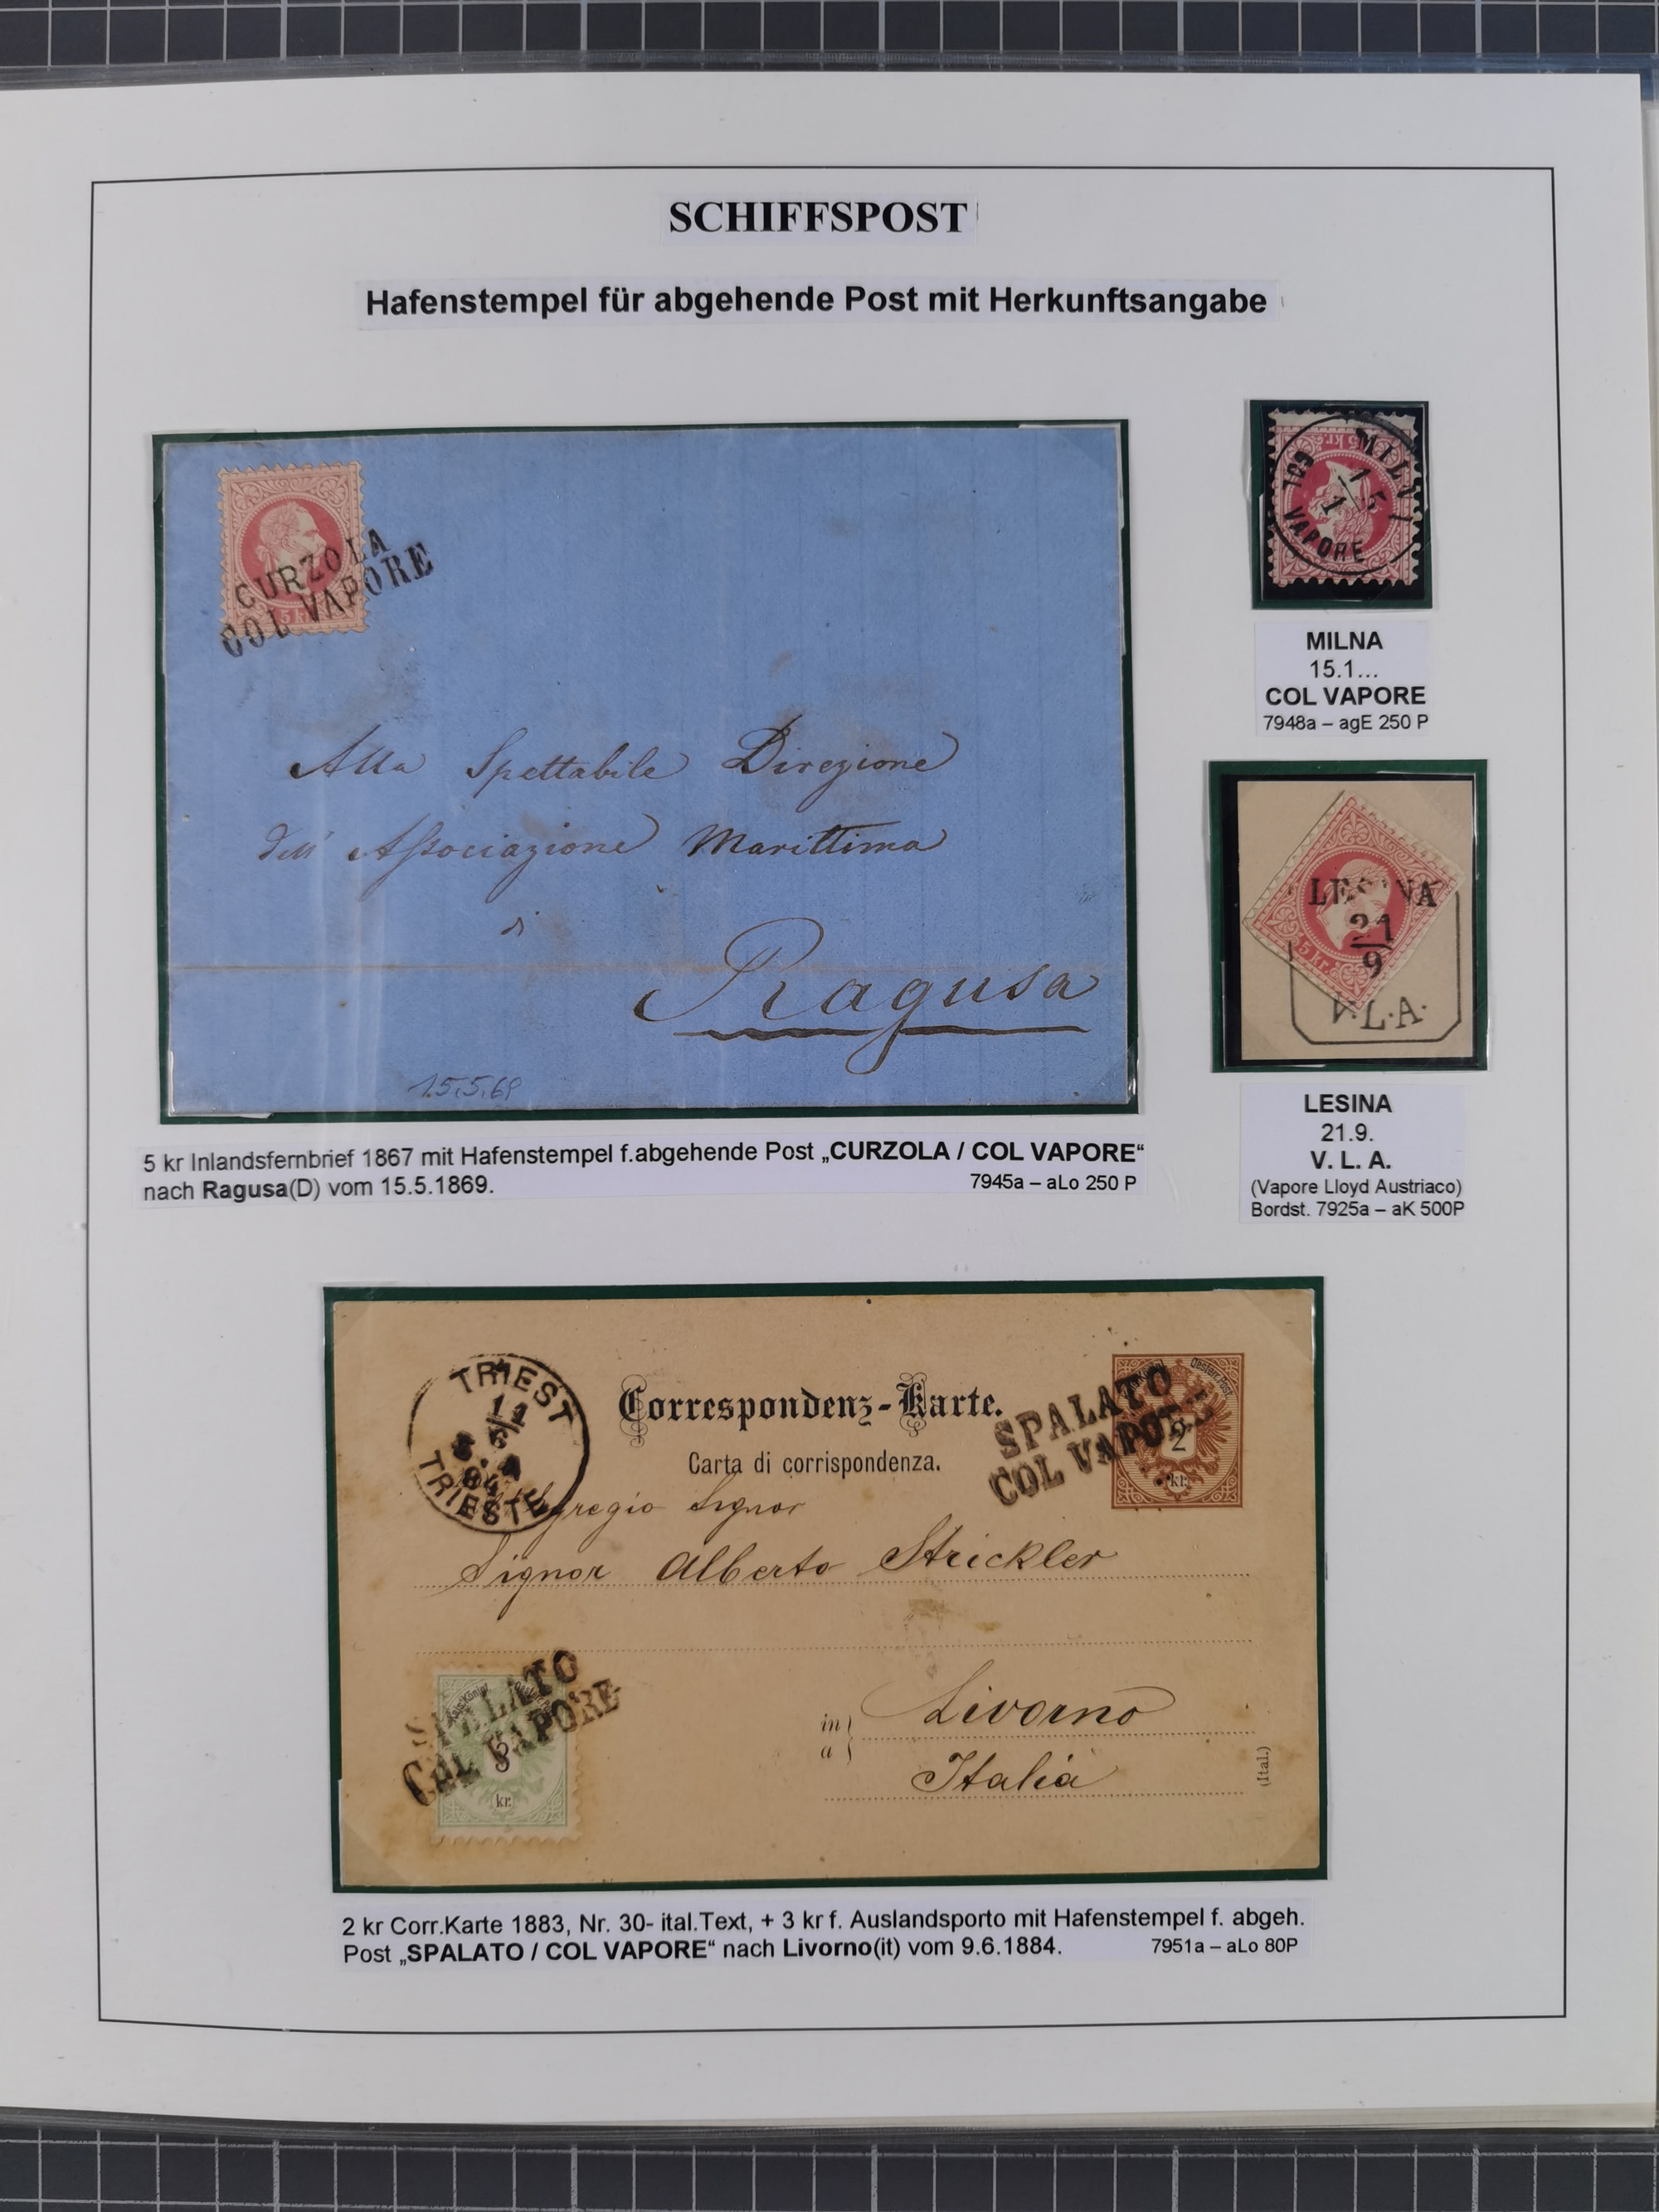 SCHIFFSPOST
Hafenstempel für abgehende Post mit Herkunftsangabe
CURZOLA
COL VAPORE
5 kr
Alla Spettabile Direzione
dell' Associazione Marittima
di
Ragusa
15.5.69
5 kr Inlandsfernbrief 1867 mit Hafenstempel f.abgehende Post „CURZOLA / COL VAPORE“
nach Ragusa(D) vom 15.5.1869.
7945a – aLo 250 P
5 kr.
15
1
COL VAPORE
MILNA
15.1...
COL VAPORE
7948a – agE 250 P
LESINA
21
9
5 kr.
V.L.A.
LESINA
21.9.
V. L. A.
(Vapore Lloyd Austriaco)
Bordst. 7925a – aK 500P
TRIEST
11
6
84
TRIESTE
Correspondenz-Karte.
Carta di corrispondenza.
SPALATO
COL VAPORE
2
kr.
Egregio Signor
Signor Alberto Strickler
SPALATO
COL VAPORE
3
kr.
in
a
Livorno
Italia
(Ital.)
2 kr Corr.Karte 1883, Nr. 30- ital.Text, + 3 kr f. Auslandsporto mit Hafenstempel f. abgeh.
Post „SPALATO / COL VAPORE“ nach Livorno(it) vom 9.6.1884.
7951a – aLo 80P